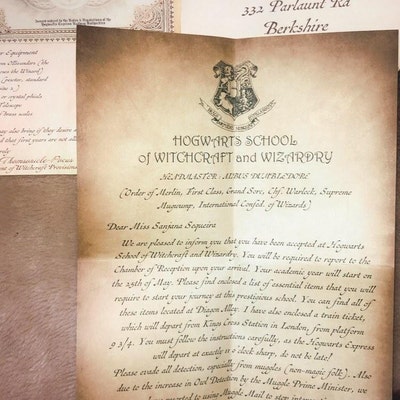 332 Parlaunt Rd
Berkshire
Equipment
HOGWARTS SCHOOL
of WITCHCRAFT and WIZARDRY
HEADMASTER: ALBUS DUMBLEDORE
(Order of Merlin, First Class, Grand Sorc, Chf. Warlock, Supreme
Mugwump, International Confed. of Wizards)
Dear Miss Sanjana Sequeira
We are pleased to inform you that you have been accepted at Hogwarts
School of Witchcraft and Wizardry. You will be required to report to the
Chamber of Reception upon your arrival. Your academic year will start on
the 25th of May. Please find enclosed a list of essential items that you will
require to start your journey at this prestigious school. You can find all of
these items located at Diagon Alley. I have also enclosed a train ticket,
which will depart from Kings Cross Station in London, from platform
9 3/4. You must follow the instructions carefully, as the Hogwarts Express
will depart at exactly 11 o'clock sharp, do not be late!
Please evade all detection, especially from muggles (non-magic folk). Also
due to the increase in Owl Detection by the Muggle Prime Minister, we
resorted to using Muggle Mail to stop